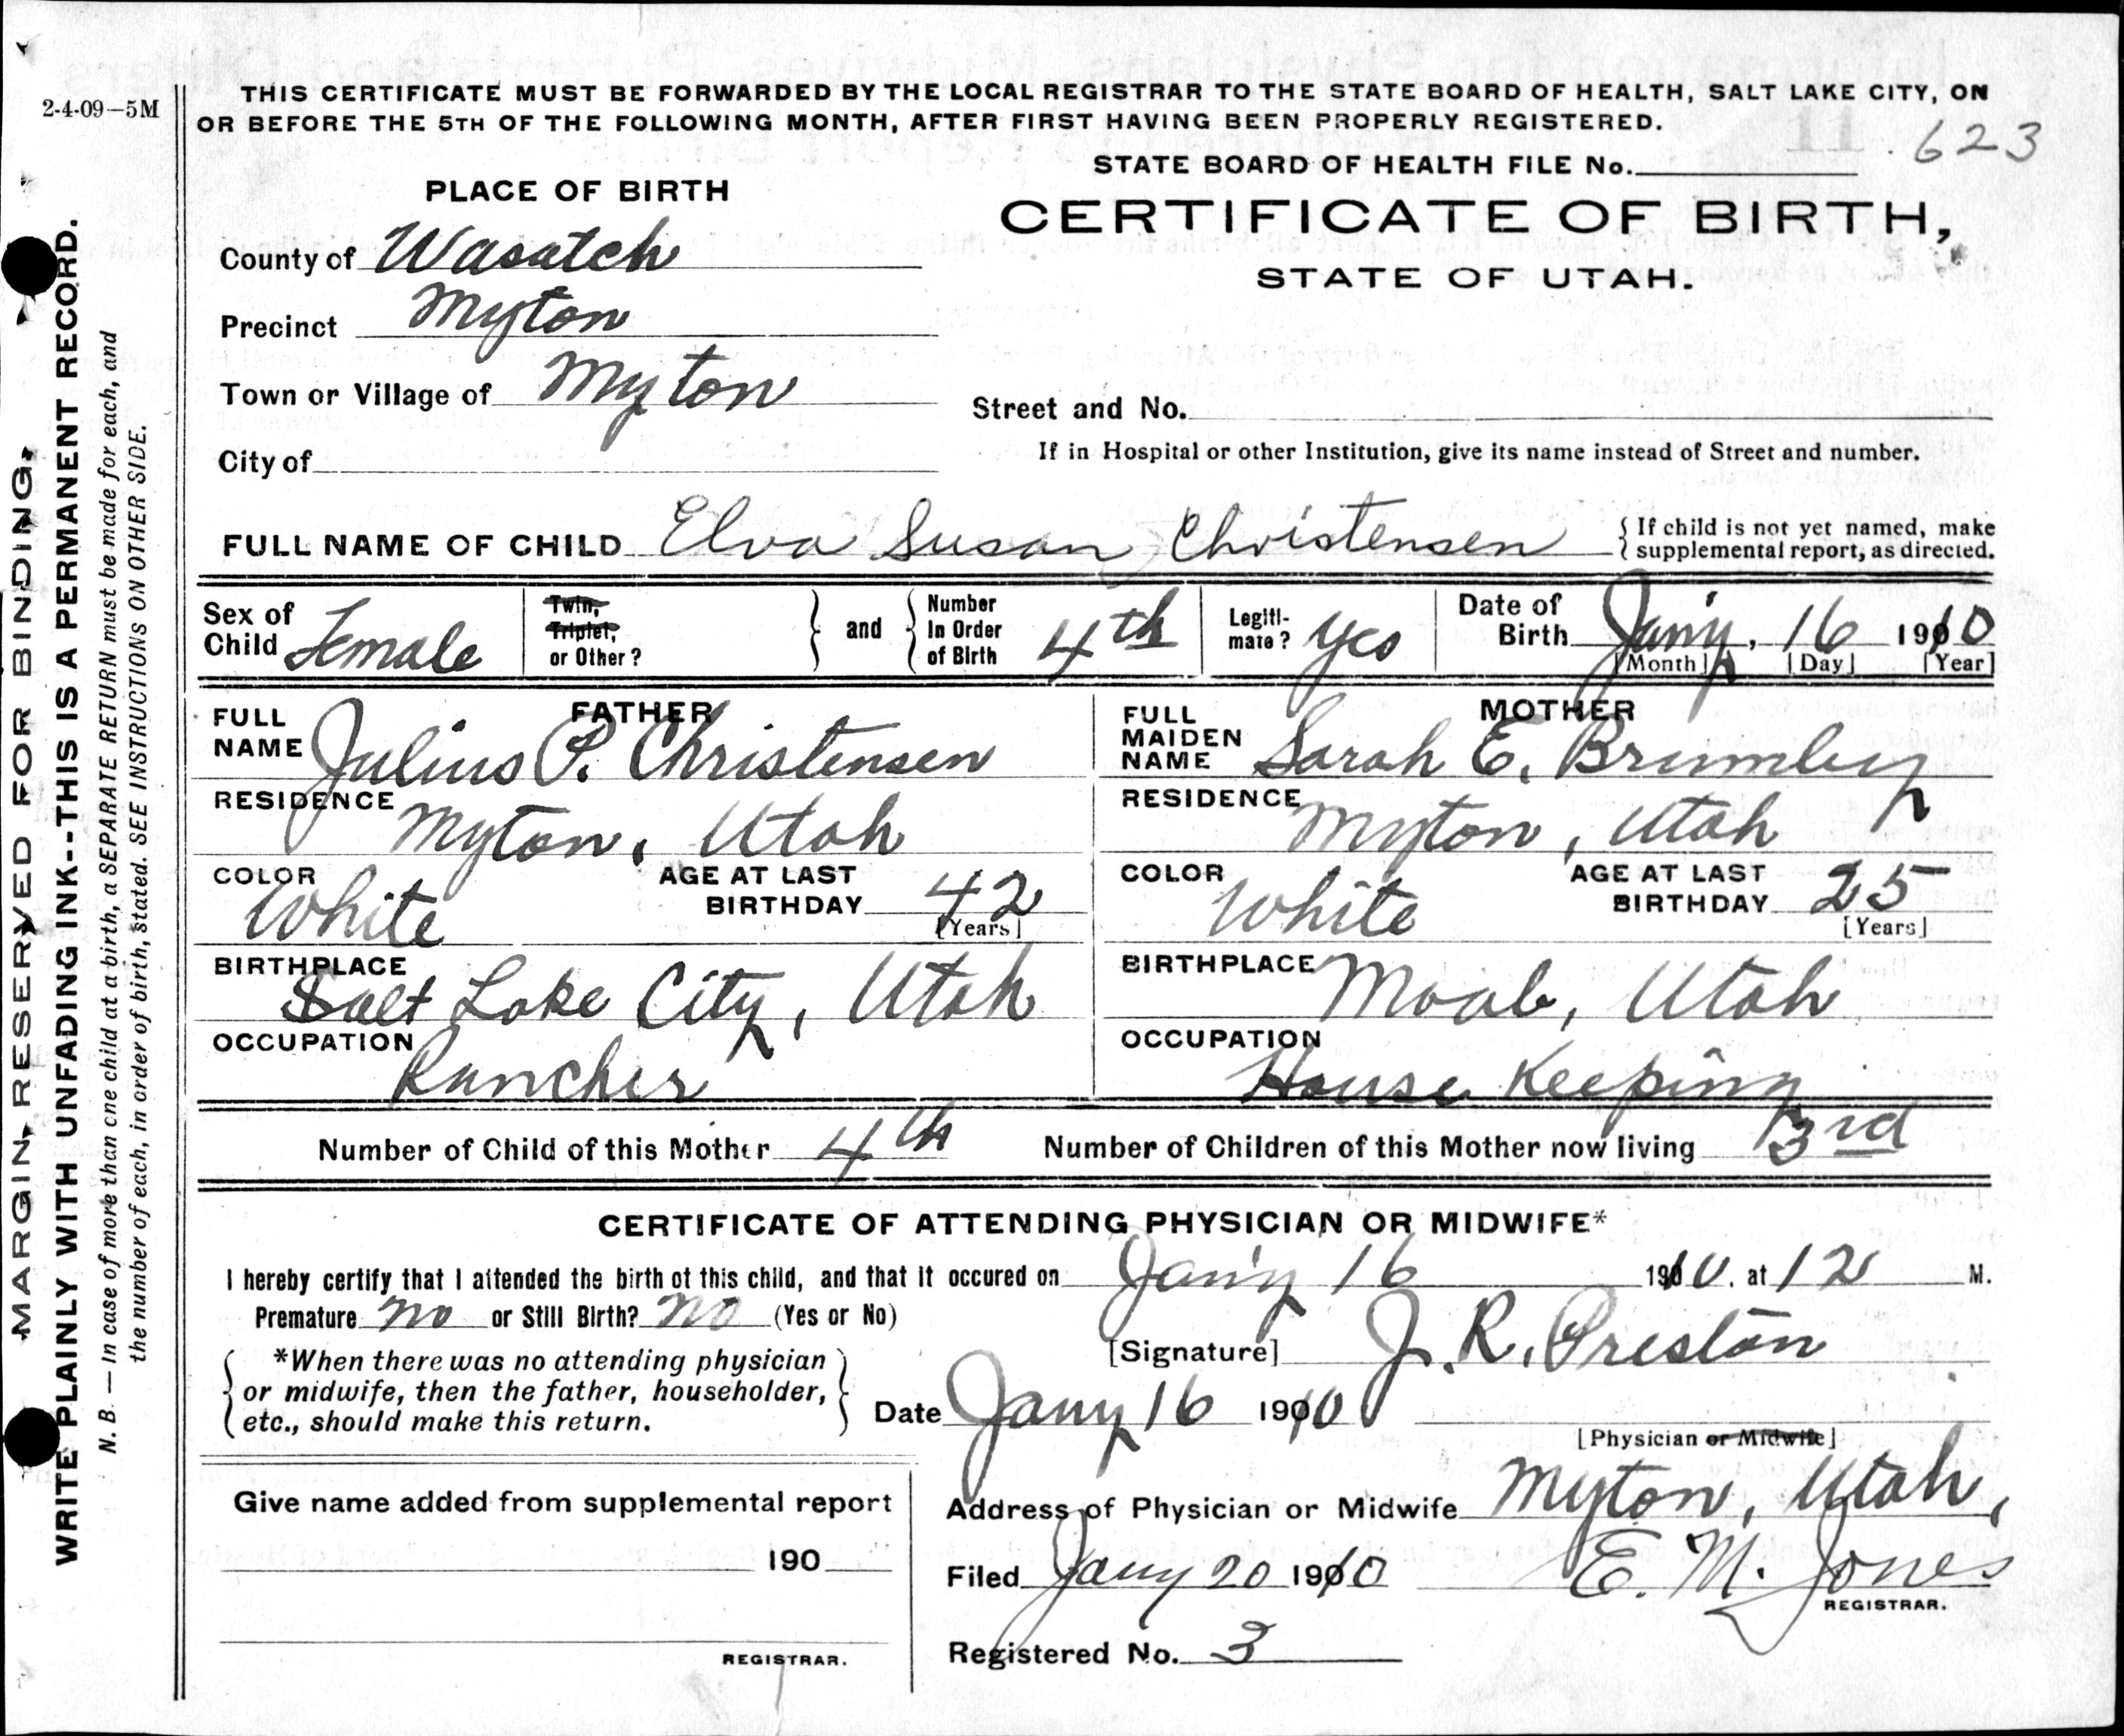 2-4-09—5M
THIS CERTIFICATE MUST BE FORWARDED BY THE LOCAL REGISTRAR TO THE STATE BOARD OF HEALTH, SALT LAKE CITY, ON
OR BEFORE THE 5TH OF THE FOLLOWING MONTH, AFTER FIRST HAVING BEEN PROPERLY REGISTERED.
11 . 623
STATE BOARD OF HEALTH FILE No.
PLACE OF BIRTH
CERTIFICATE OF BIRTH,
STATE OF UTAH.
County of Wasatch
Precinct Myton
Town or Village of Myton
Street and No.
City of
If in Hospital or other Institution, give its name instead of Street and number.
FULL NAME OF CHILD Elva Susan Christensen { If child is not yet named, make
supplemental report, as directed.
Sex of Child Female
Twin, Triplet, or Other?
and
Number In Order of Birth 4th
Legiti-mate? Yes
Date of Birth Jan'y, 16 1910
[Month] [Day] [Year]
FATHER
FULL NAME Julius P. Christensen
RESIDENCE Myton, Utah
COLOR White
AGE AT LAST BIRTHDAY 42
[Years]
BIRTHPLACE Salt Lake City, Utah
OCCUPATION Rancher
MOTHER
FULL MAIDEN NAME Sarah E. Brumley
RESIDENCE Myton, Utah
COLOR White
AGE AT LAST BIRTHDAY 25
[Years]
BIRTHPLACE Moab, Utah
OCCUPATION House Keeping
Number of Child of this Mother 4th
Number of Children of this Mother now living 3rd
CERTIFICATE OF ATTENDING PHYSICIAN OR MIDWIFE*
I hereby certify that I attended the birth of this child, and that it occured on Jan'y 16 1910. at 12 M.
Premature no or Still Birth? no (Yes or No)
[Signature] J. R. Preston
*When there was no attending physician
or midwife, then the father, householder,
etc., should make this return.
Date Jany 16 1910
[Physician or Midwife]
Give name added from supplemental report
190
REGISTRAR.
Address of Physician or Midwife Myton, Utah,
Filed Jany 20 1910 E. M. Jones
REGISTRAR.
Registered No. 3
MARGIN RESERVED FOR BINDING.
WRITE PLAINLY WITH UNFADING INK--THIS IS A PERMANENT RECORD.
N. B. — In case of more than one child at a birth, a SEPARATE RETURN must be made for each, and
the number of each, in order of birth, stated. SEE INSTRUCTIONS ON OTHER SIDE.